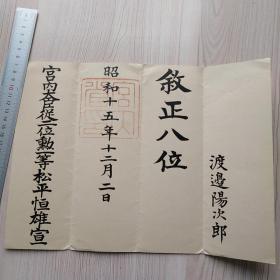 渡邉陽次郎
敘正八位
昭和十五年十二月二日
宮內大臣從二位勲一等松平恒雄宣